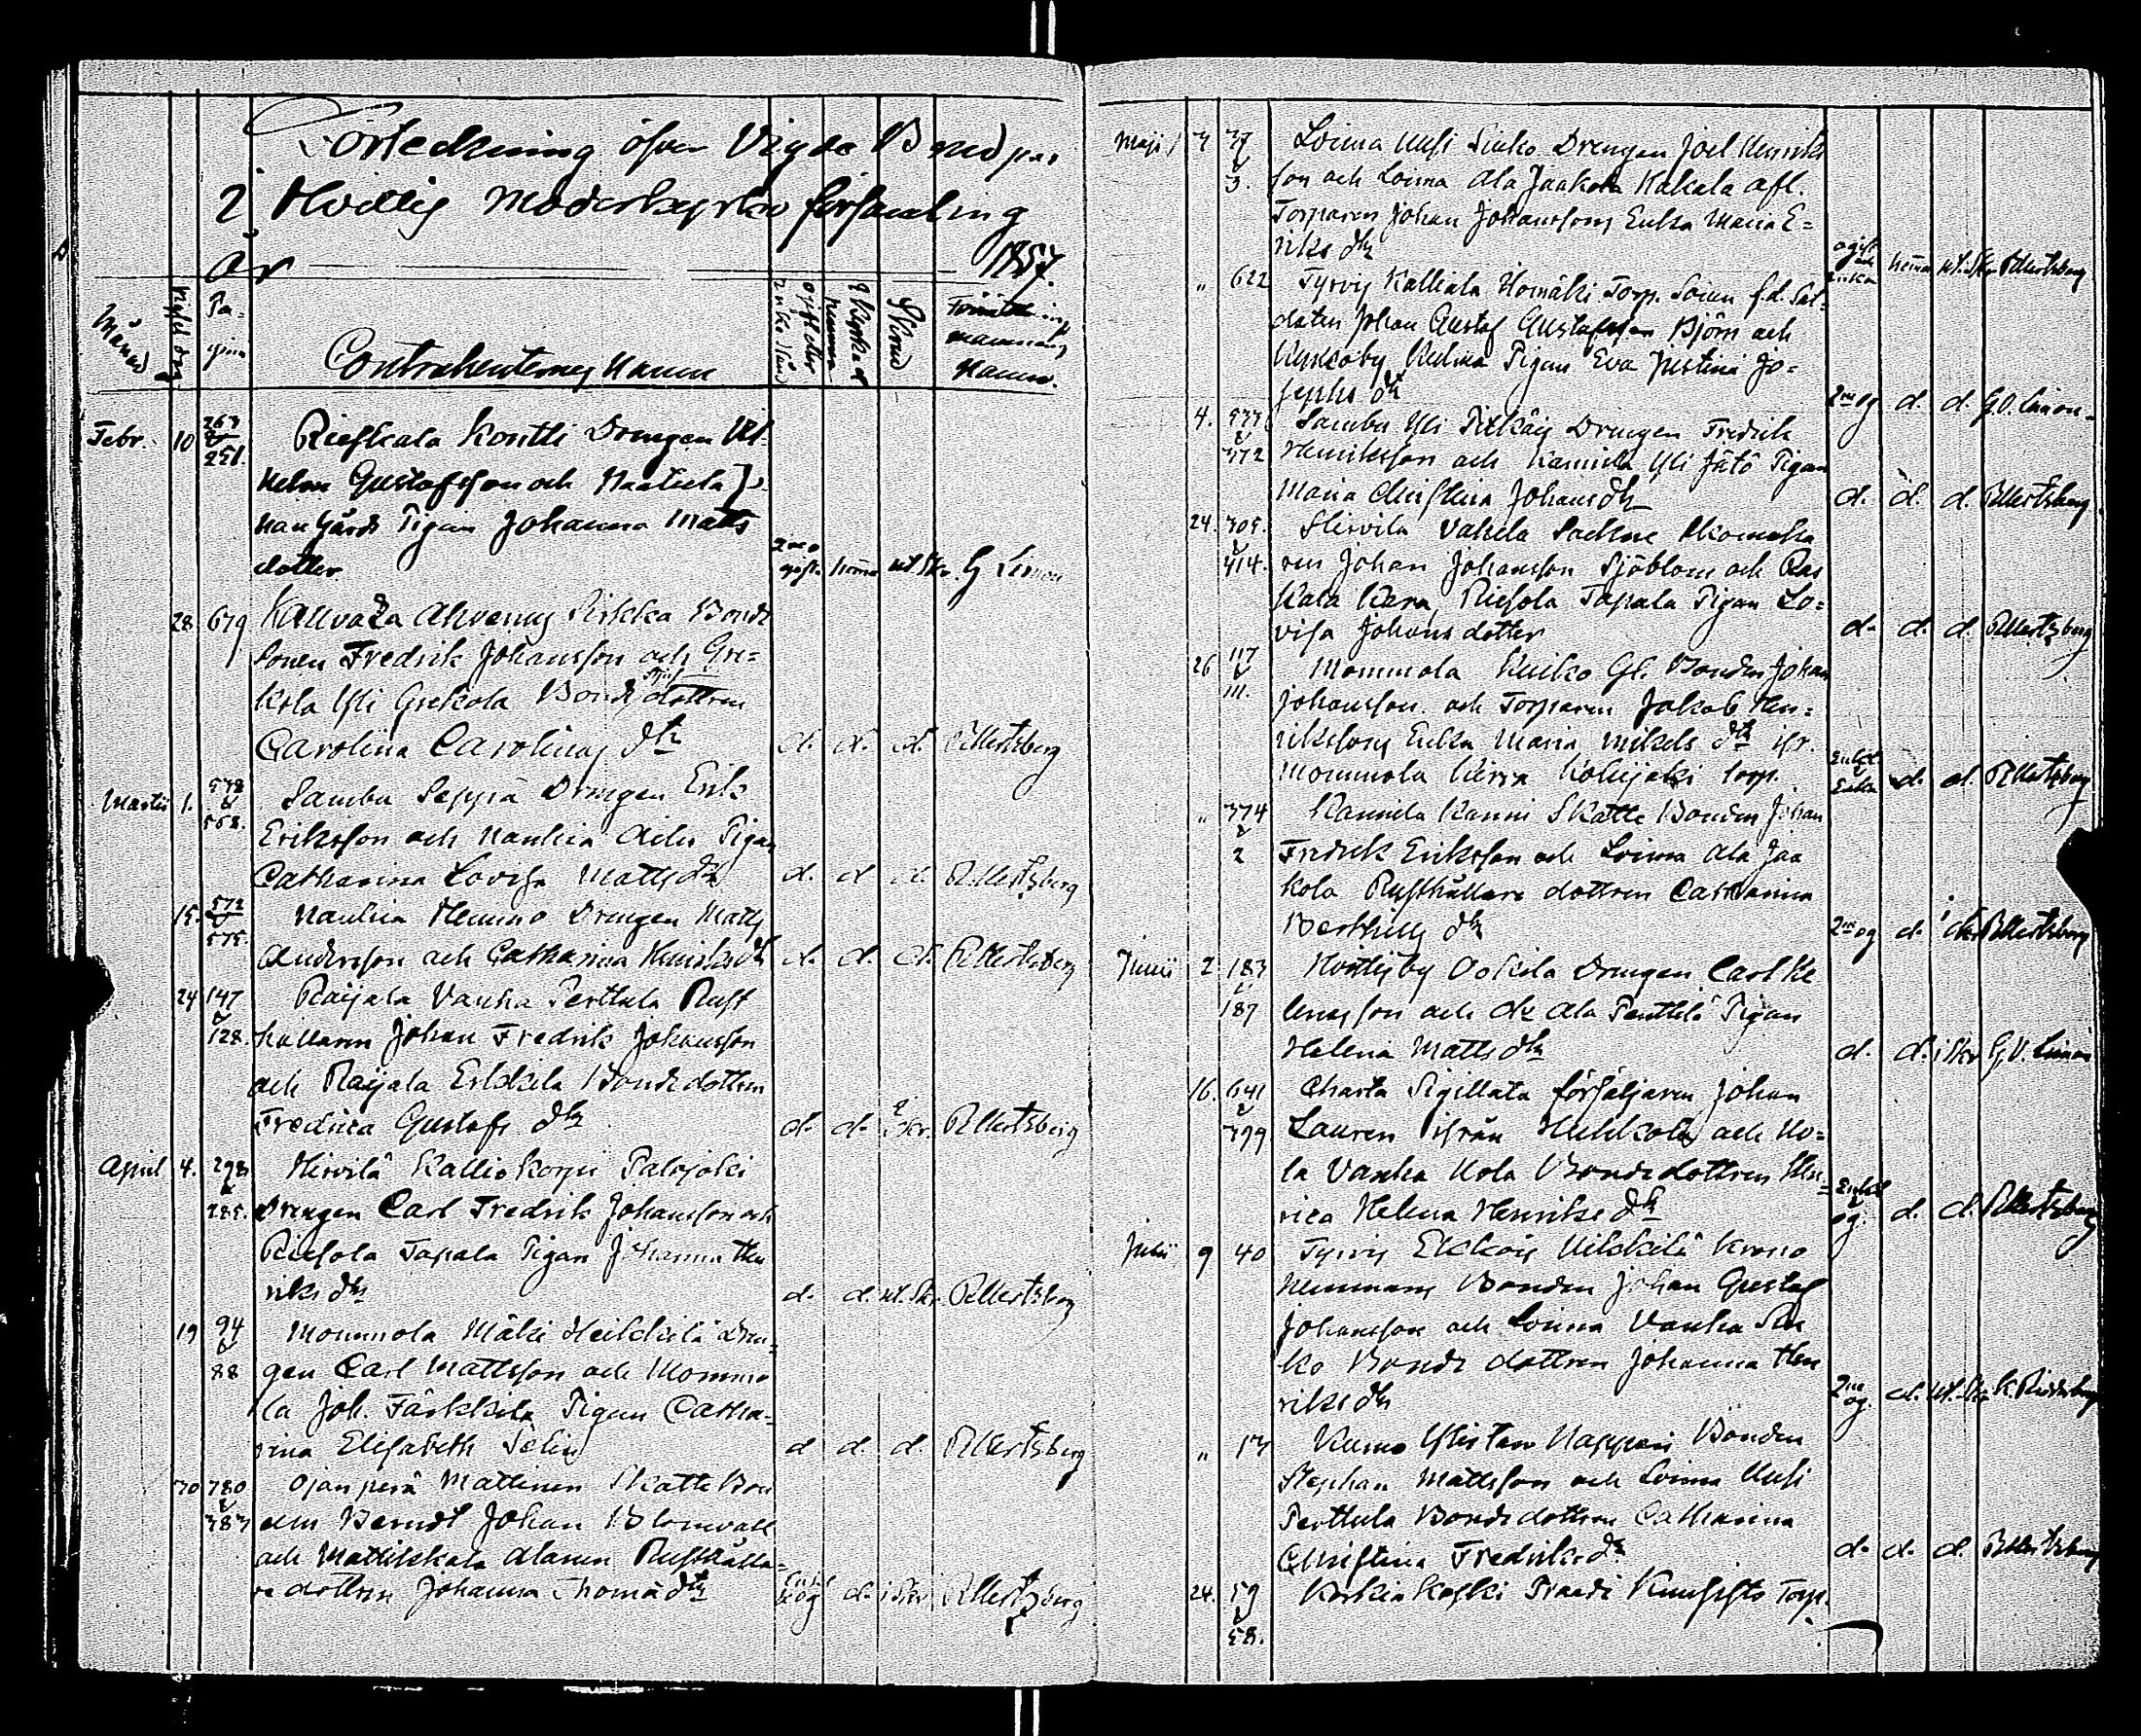 Förteckning öfver Vigde Brudpar
i Hvittis Moderkyrko församling
År 1857.
Månad
Pagina
Contrahenternes Namn
ogift eller
i Kyrka el hemma
Skrud
Förrättning mannens Namn.
Febr. 10 267 & 251. Rieskala Kontti Drengen Vil-
helm Gustafsson och
Pigan Johanna Matts
dotter hema ut. Skr. G Limon
28 679 Kauvatsa Ahvenus Pirkka Bonde
sonen Fredrik Johansson och Gre=
kola Yli Grekola Bonde dottren
Carolina Carolinas dtr d. d. d. R Mertzberg
Martii 1. 578 & 568. Sambu Seppä Drengen Erik
Eriksson och Naukia Pigan
Catharina Lovisa Matts dtr d. d. d. R Mertzberg
15. 572 & 575. Naukia Hemmo Drengen Matts
Andersson och Catharina Henriksdtr d. d. d. R Mertzberg
24 147 & 128. Raijala Vanha Perttula Rust
hållaren Johan Fredrik Johansson
och Raijala Erkkila Bonde dottren
Fredrica Gustafs dtr d. d. i Skr. R Mertzberg
April 4. 298 & 285. Hirvilä Kalliokorpi Palojoki
Drengen Carl Fredrik Johansson och
Riesola Tapala Pigan Johanna Hen
riks dtr d. d. ut. Skr. R Mertzberg
19 94 & 88 Mommola Mäki Heikkilä Dren=
gen Carl Mattsson och Mommo
la Joh. Färkkilä Pigan Catha=
rina Elisabeth Selin d d. d. R Mertzberg
30 380 & 383 Ojanperä Mattinen Skatte Bon
den Berndt Johan Blomvall
och Mattilskala Alanen Rusthålla=
re dottren Johanna Thomæ dtr d. i Skr R Mertzberg
Maji 3 37 & 3. Loima Uusi Sinko Drengen Joel Henriks
son och Loima Ala Jaakola Kakala afl.
Torparen Johan Johanssons Enka Maria E=
riks dtr ogift och Enka hema ut. Skr R Mertzberg
" 622 Tyrvis Kalliala Homäki Torp. Soinu f.d. Sol=
daten Johan Gustaf Gustafsson Björn och
Kulma Pigan Eva Justina Jo=
sephs dtr 2ne og d. d. G.V. Limon
4. 577 & 372 Sambu Yli Pirkäis Drengen Fredrik
Henriksson och Kamila Yli Jätö Pigan
Maria Christina Johans dtr d. d. d. R Mertzberg
24. 305. & 414. Skirvila Vahela Sockne Skomaka
ren Johan Johansson Sjöblom och Ras
kala Kera, Riesola Tapala Pigan Lo=
visa Johans dotter d. d. d. R Mertzberg
26 117 & 111. Mommola Knko Gl. Bonden Johan
Johansson och Torparen Jakob Hen=
rikssons Enka Maria Mikels dtr ifr.
Mommola Kirra Kokijoki torp. Enkl. & Enka d. d. R Mertzberg
" 374 & 2 Kamila Kanni Skatte Bonden Johan
Fredrik Eriksson och Loima Ala Jaa
kola Rusthållare dottren Catharina
Berthils dtr 2ne og d. i Skr R Mertzberg
Junii 2 183 & 187 Hvittisby Ookila Drengen Carl Kle
mensson och do Ala Penttilä Pigan
Helena Matts dtr d. d. i Skr G V. Limon
16. 641 & 399 Charta Sigillata försäljaren Johan
Lauren ifrån Huhkola och Ho=
la Vanha Hola Bonde dottren Hen=
rica Helena Henriks dtr Enkl & og. d. d. R Mertzberg
Julii 9 40 Tyrvis Ekkois Uilskilä Krono
Hemmans Bonden Johan Gustaf
Johansson och Loima Vanha Sin
ko Bonde dottren Johanna Hen
riks dtr 2ne og. d. ut. Skr
" 13 Kumo Ylistaro Nappari Bonden
Stephan Mattsson och Loima Uusi
Perttula Bonde dottren Catharina
Christina Fredriks dr d. d. d. R Mertzberg
24. 59 & 58. Korkiakoski Torp.